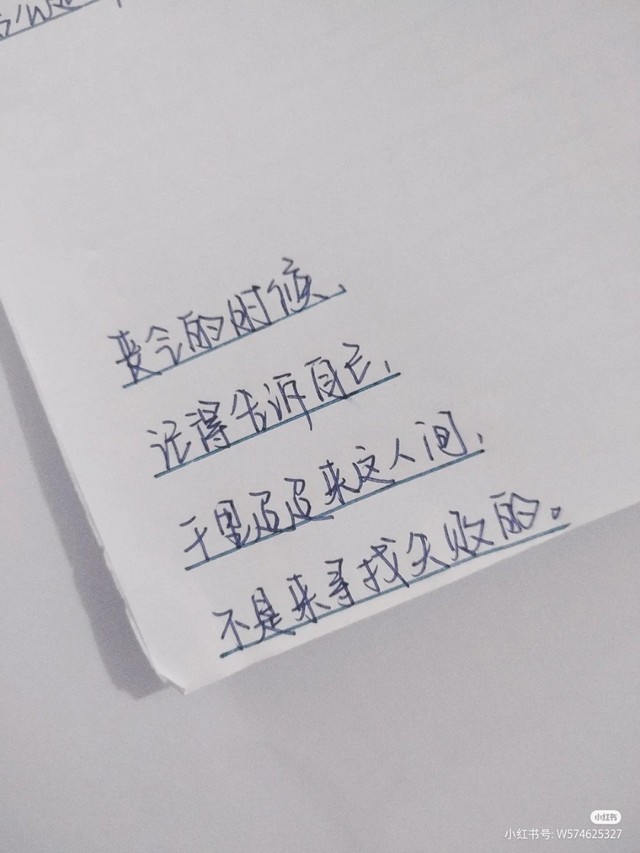 丧气的时候、
记得告诉自己,
千里迢迢来这人间,
不是来寻找失败的。
小红书
小红书号: W574625327